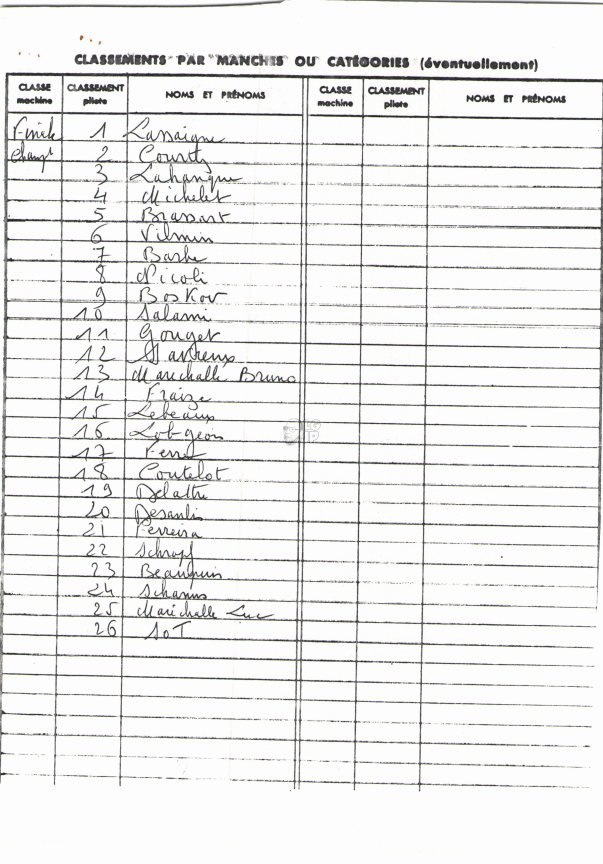 CLASSEMENTS PAR "MANCHES" OU CATÉGORIES (éventuellement)
CLASSE machine CLASSEMENT pilote NOMS ET PRÉNOMS CLASSE machine CLASSEMENT pilote NOMS ET PRÉNOMS
1 Lassaigne
Champt 2 Courtz
3 Lahangue
4 Michelet
5 Brassart
6 Vilmin
7 Barbe
8 Nicoli
9 Boskov
10 Salami
11 Gouget
12
13 Marechalle Bruno
14 Fraize
15 Lebeaux
16 Lobgeois
17 Ferret
18 Coutelot
19 Delattre
20 Desaulis
21 Ferreira
22 Schropf
23 Beaupuis
24 Schanus
25 Maréchalle Luc
26 SoT